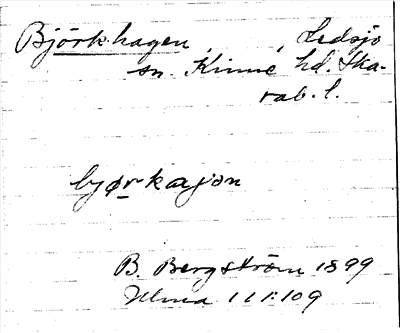 Björkhagen, , Ledsjö
sn. Kinne hd. Ska-
rab. l.
bjørkajən
B. Bergström 1899
Ulma 111:109